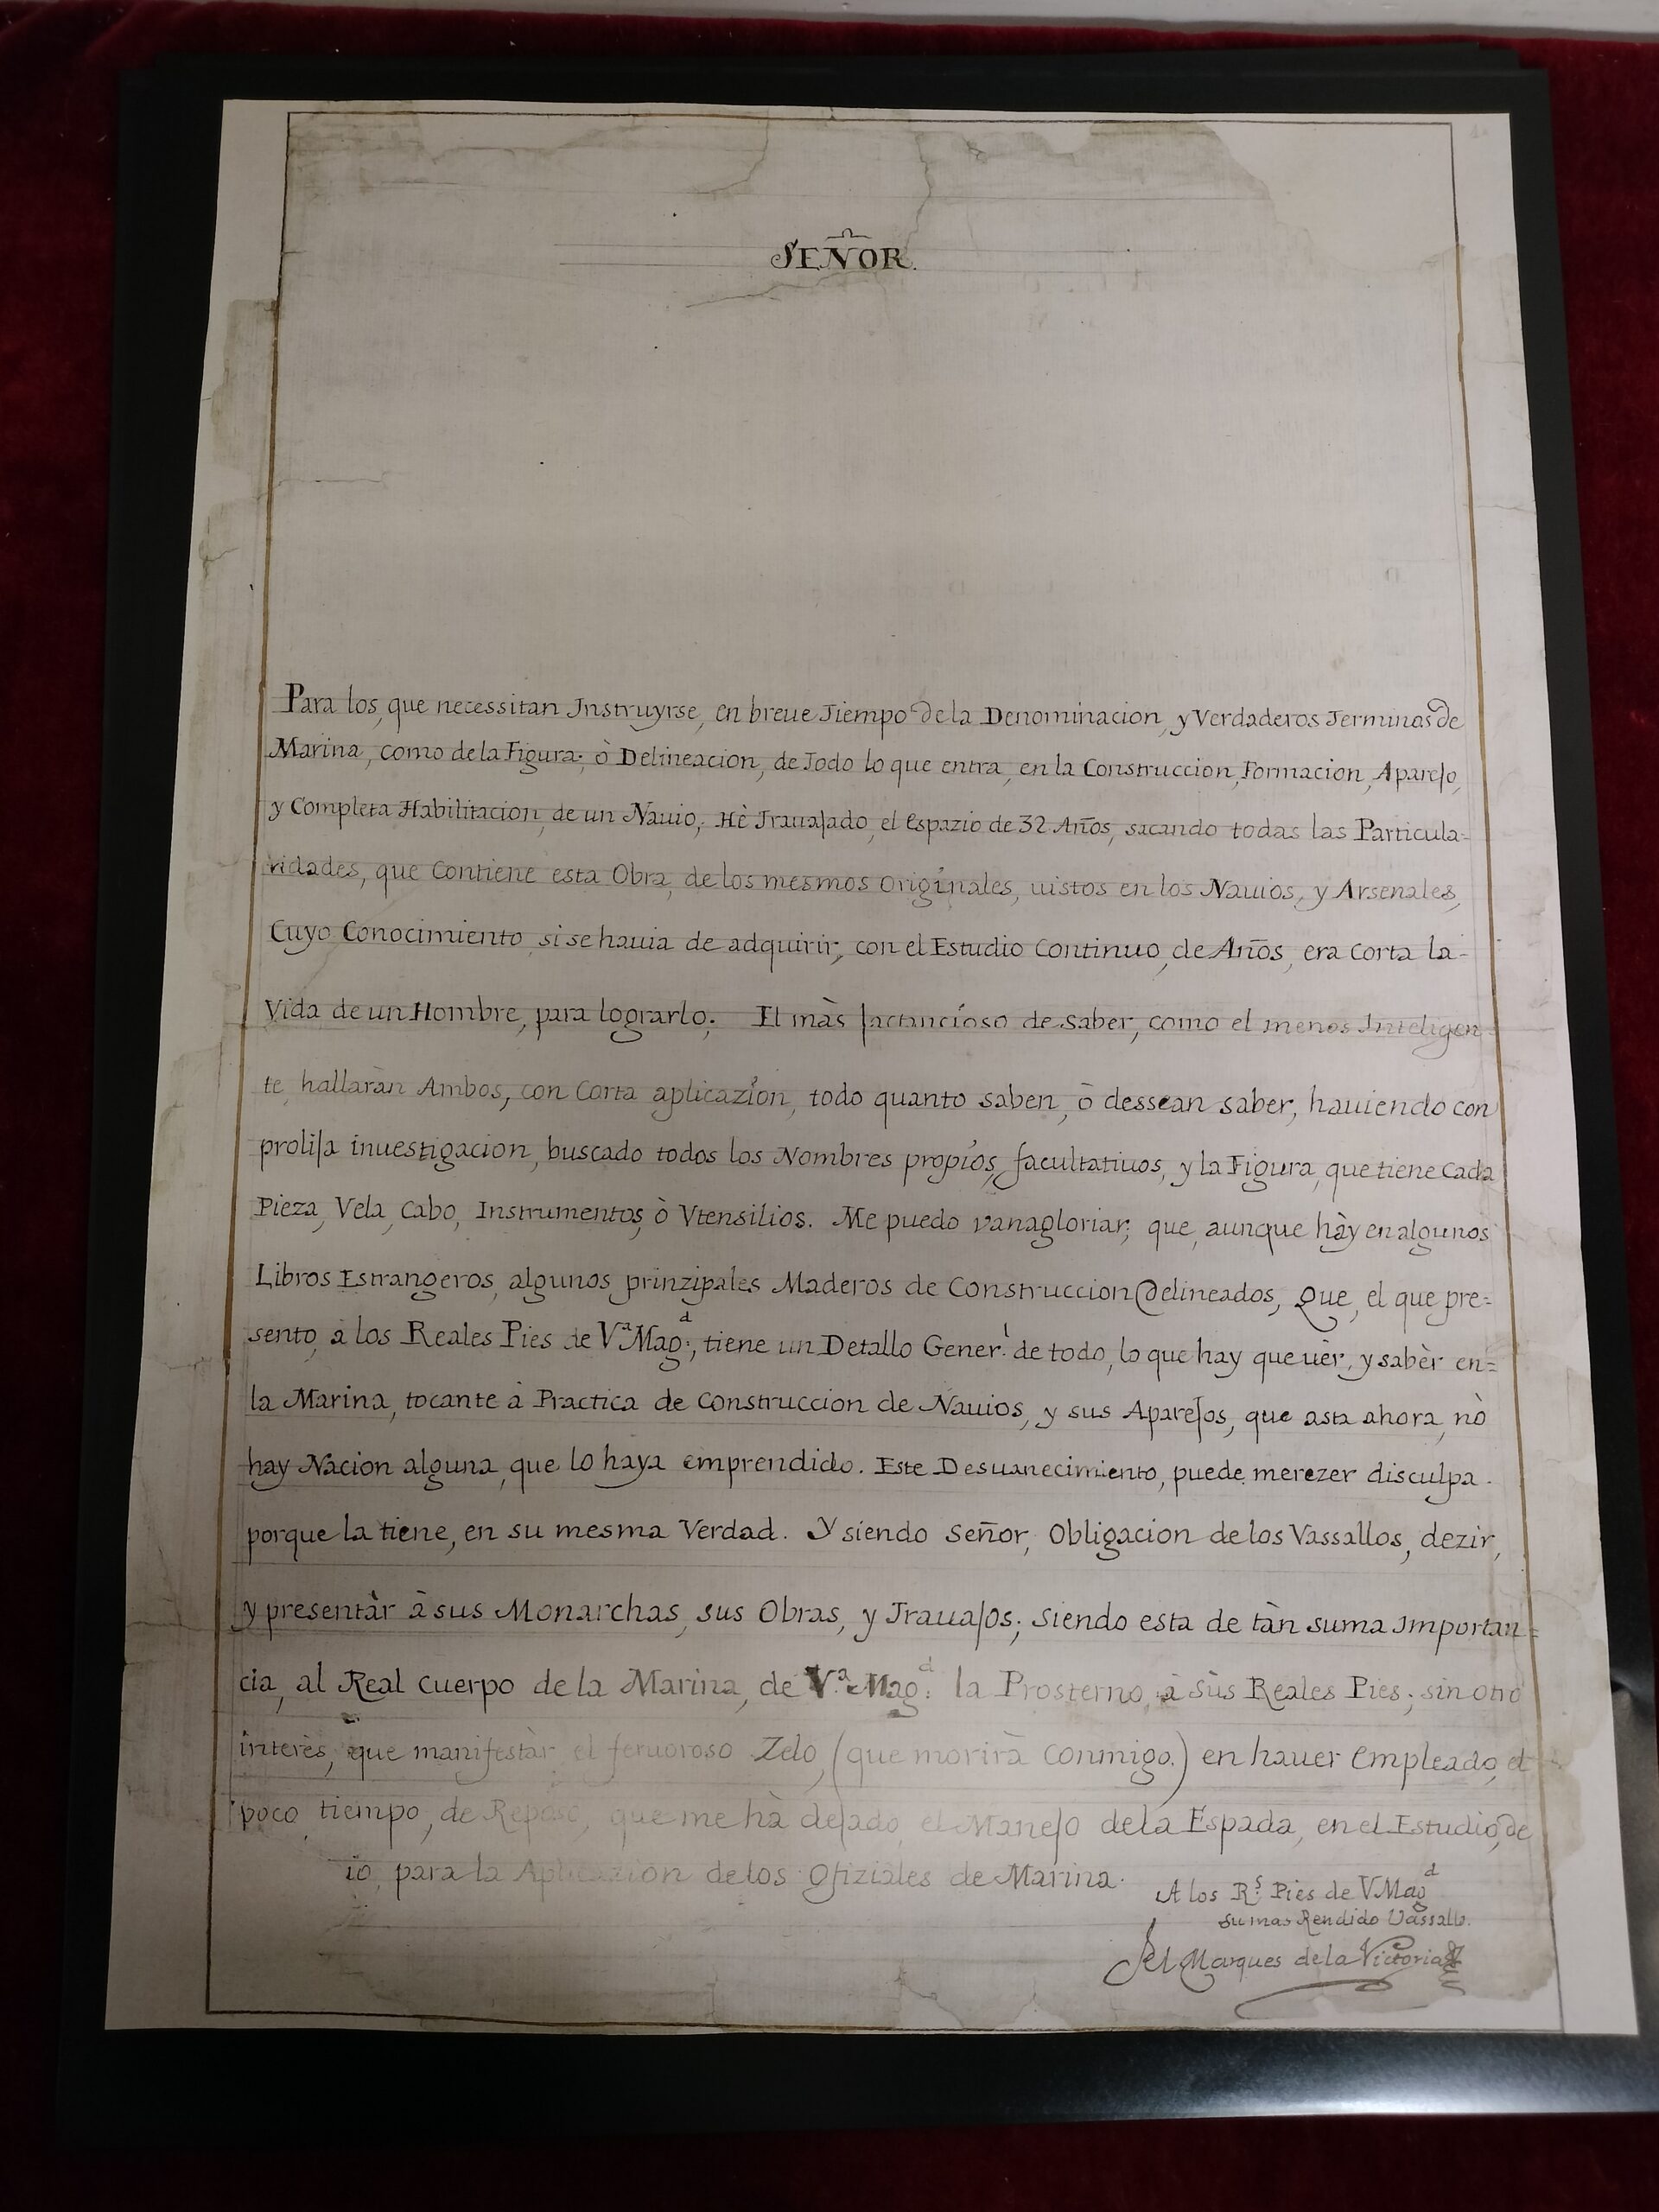 SEÑOR.
Para los, que necessitan Instruyrse, en breue Tiempo de la Denominacion, y Verdaderos Terminos de
Marina, como de la Figura; ò Delineacion, de Todo lo que entra, en la Construccion, Formacion, Aparejo,
y Completa Habilitacion, de un Nauio; Hè Trauajado, el Espazio de 32 Años, sacando todas las Particula-
ridades, que Contiene esta Obra, de los mesmos Originales, uistos en los Nauios, y Arsenales,
Cuyo Conocimiento, si se hauia de adquirir, con el Estudio Continuo, de Años, era Corta la-
Vida de un Hombre, para lograrlo; El màs jactancioso de saber, como el menos Inteligen-
te, hallaràn Ambos, con Corta aplicazion, todo quanto saben, ò dessean saber, hauiendo con
prolija inuestigacion, buscado todos los Nombres propios, facultatiuos, y la Figura, que tiene Cada
Pieza, Vela, Cabo, Instrumentos, ò Vtensilios. Me puedo vanagloriar; que, aunque hày en algunos
Libros Estrangeros, algunos prinzipales Maderos de Construccion Delineados, Que, el que pre=
sento, à los Reales Pies de Vª Mag.d, tiene un Detallo Gener.l de todo, lo que hay que uèr, y sabèr en=
la Marina, tocante à Practica de Construccion de Nauios, y sus Aparejos, que asta ahora, nò
hay Nacion alguna, que lo haya emprendido. Este Desuanecimiento, puede merezer disculpa.
porque la tiene, en su mesma Verdad. Y siendo Señor, Obligacion de los Vassallos, dezir,
y presentàr à sus Monarchas, sus Obras, y Trauajos; siendo esta de tàn suma Importan=
cia, al Real Cuerpo de la Marina, de V.ª Mag.d la Prosterno, à sùs Reales Pies; sin otro
interès, que manifestàr el feruoroso Zelo, (que morirà Conmigo.) en hauer Empleado, el
poco tiempo, de Reposo, que me hà dejado, el Manejo de la Espada, en el Estudio, de
io, para la Aplicazion de los Ofiziales de Marina.
A los R.s Pies de V Magd
su mas Rendido Vassallo.
El Marques de la Victoria